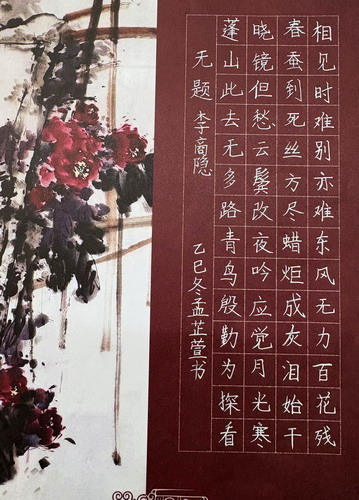 相见时难别亦难东风无力百花残
春蚕到死丝方尽蜡炬成灰泪始干
晓镜但愁云鬓改夜吟应觉月光寒
蓬山此去无多路青鸟殷勤为探看
无题 李商隐 乙巳冬孟芷萱书